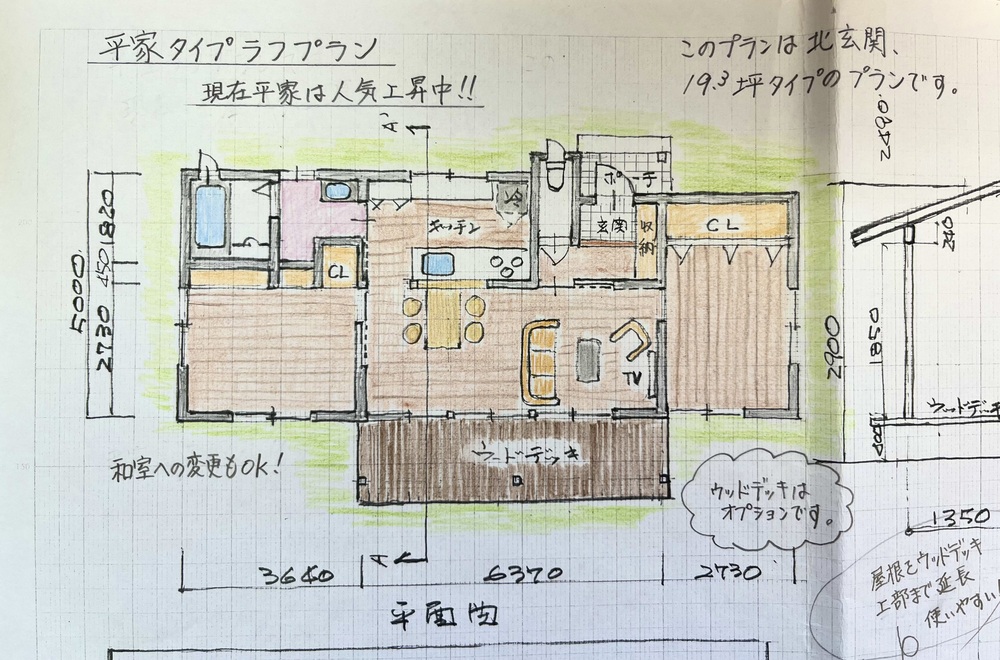 平家タイプラフプラン
現在平家は人気上昇中!!
このプランは北玄関、
19.3坪タイプのプランです。
A
ポーチ
キッチン
冷
玄関
収納
CL
CL
TV
ウッドデッキ
和室への変更もOK!
ウッドデッキは
オプションです。
5000
1820
450
2730
A
3640
6370
2730
平面図
2490.0
240
2900
1850
ウッドデッキ
1350
屋根をウッドデッキ
上部まで延長
使いやすい!